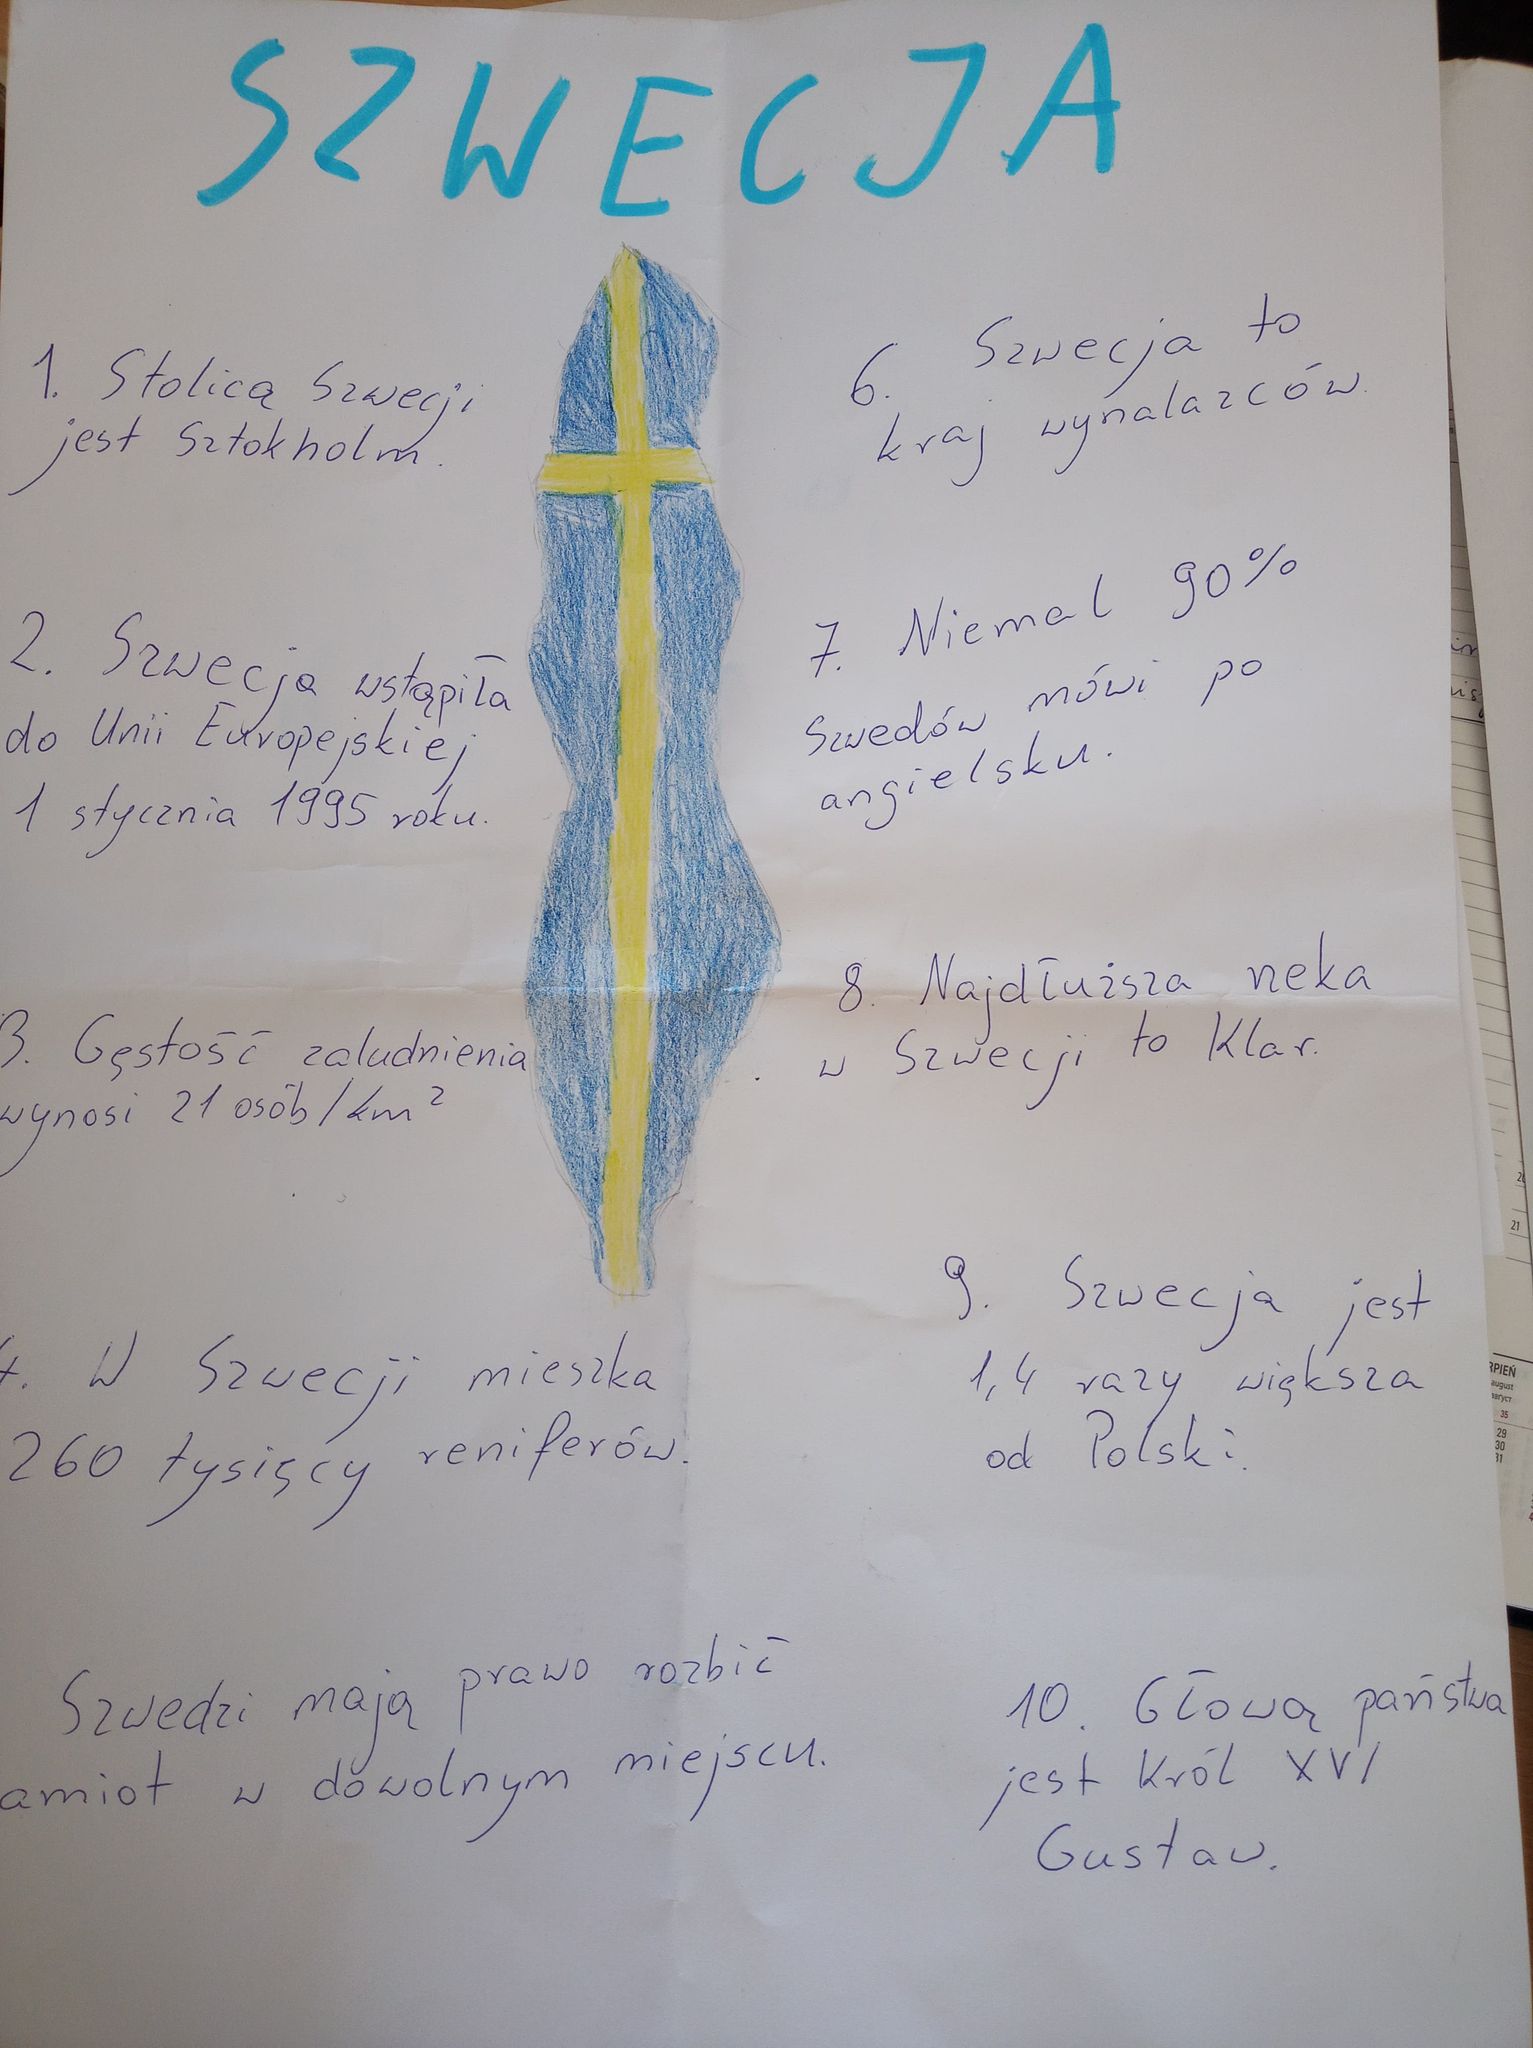 SZWECJA
1. Stolicą Szwecji
jest Sztokholm.
2. Szwecja wstąpiła
do Unii Europejskiej
1 stycznia 1995 roku.
3. Gęstość zaludnienia
wynosi 21 osób/km²
4. W Szwecji mieszka
260 tysięcy reniferów.
Szwedzi mają prawo rozbić
amiot w dowolnym miejscu.
6. Szwecja to
kraj wynalazców.
7. Niemal 90%
Szwedów mówi po
angielsku.
8. Najdłuższa rzeka
w Szwecji to Klar.
9. Szwecja jest
1,4 razy większa
od Polski.
10. Głową państwa
jest Król XVI
Gustaw.
20
21
RPIEŃ
august
август
35
29
30
31